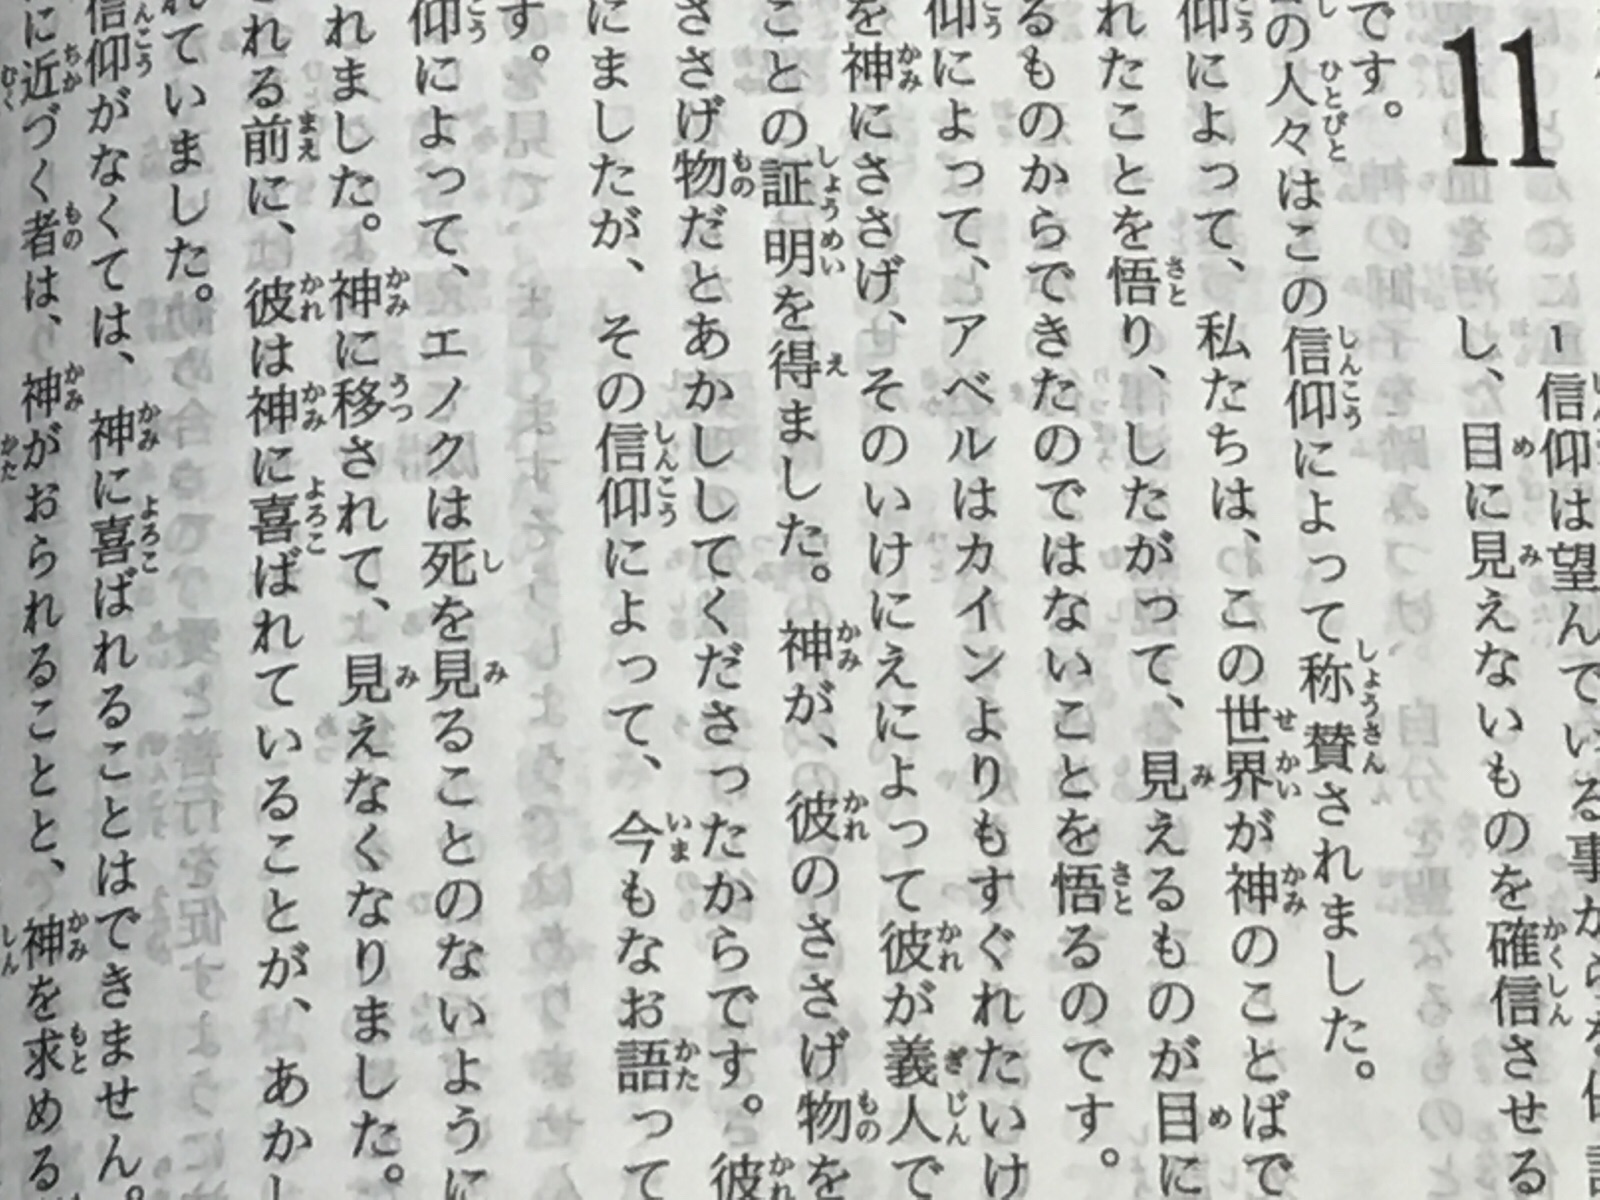 11
1 信仰は望んでいる事がらを
し、目に見えないものを確信させる
です。
の人々はこの信仰によって称賛されました。
仰によって、私たちは、この世界が神のことばで
れたことを悟り、したがって、見えるものが目に
るものからできたのではないことを悟るのです。
仰によって、アベルはカインよりもすぐれたいけ
を神にささげ、そのいけにえによって彼が義人で
ことの証明を得ました。神が、彼のささげ物を
ささげ物だとあかししてくださったからです。彼
にましたが、その信仰によって、今もなお語って
す。
仰によって、エノクは死を見ることのないように
れました。神に移されて、見えなくなりました。
される前に、彼は神に喜ばれていることが、あかし
れていました。
信仰がなくては、神に喜ばれることはできません。
に近づく者は、神がおられることと、神を求める